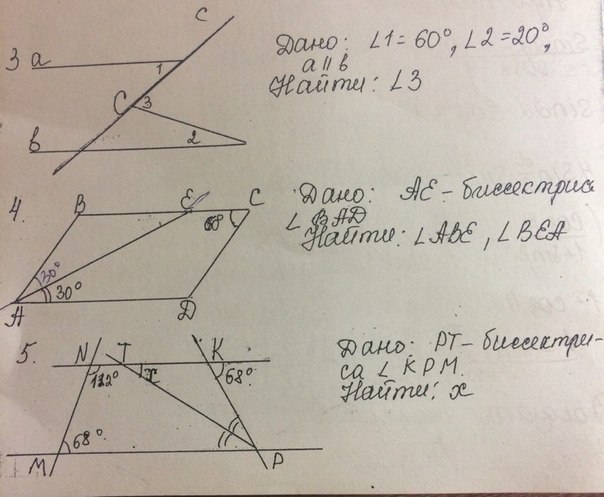 c
3 a
1
Дано: ∠1=60°, ∠2=20°,
a ∥ b
Найти: ∠3
C 3
b 2
4. B E C
60°
30°
30°
A D
Дано: AE - биссектрис
∠ BAD
Найти: ∠ABE, ∠BEA
5. N T K
112° x 68°
68°
M P
Дано: PT - биссектри-
са ∠ KPM.
Найти: x